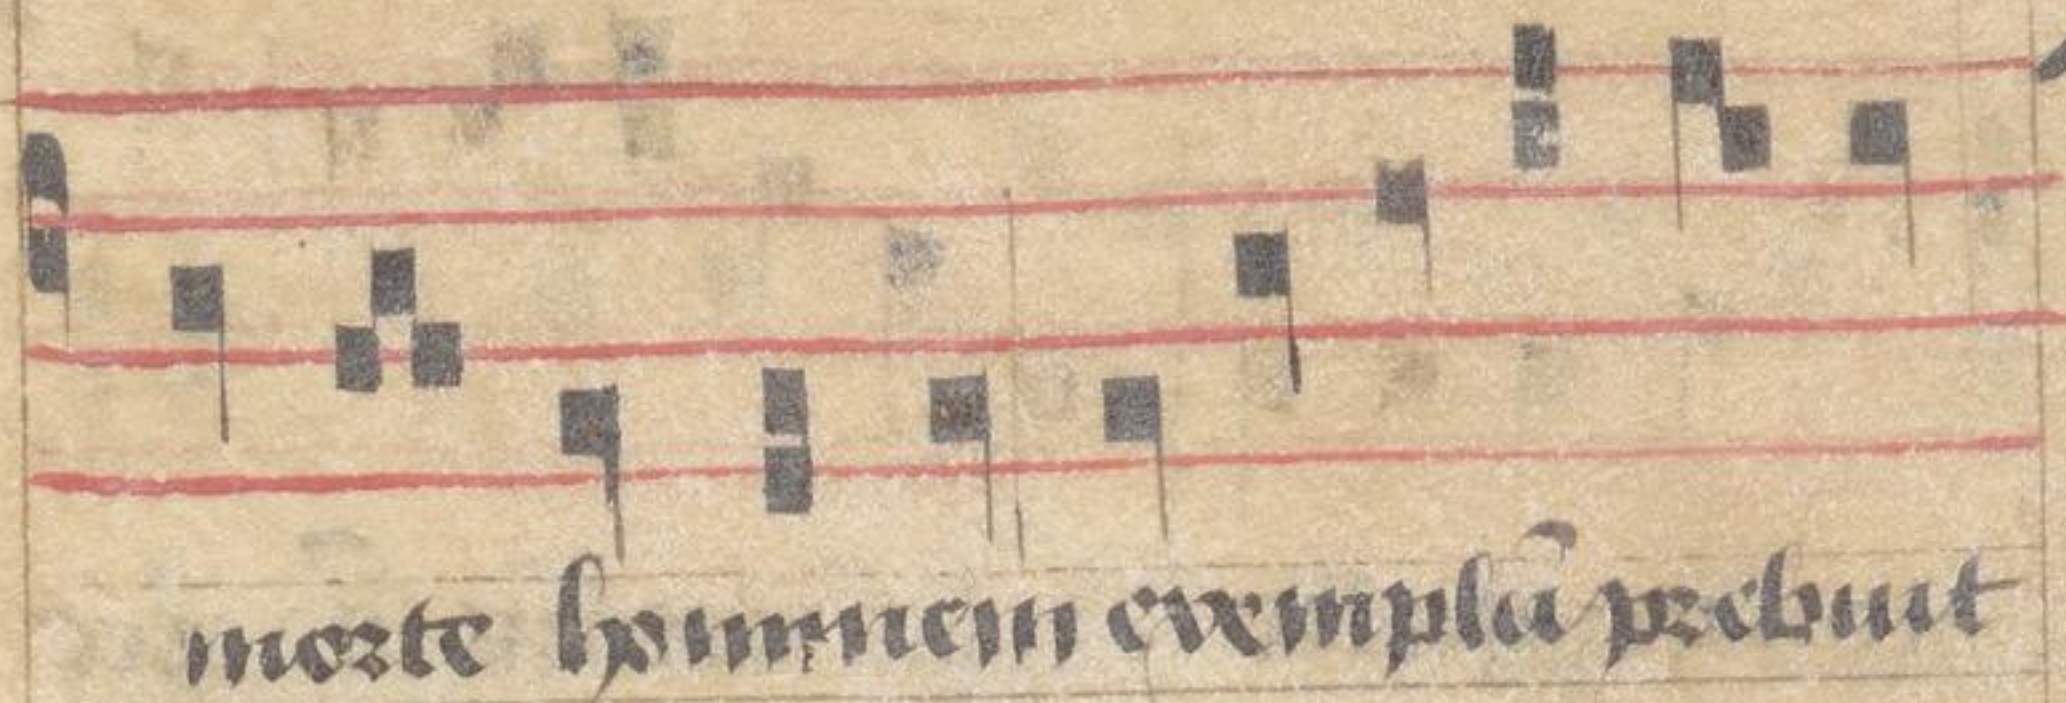 morte hominem exemplū prebuit